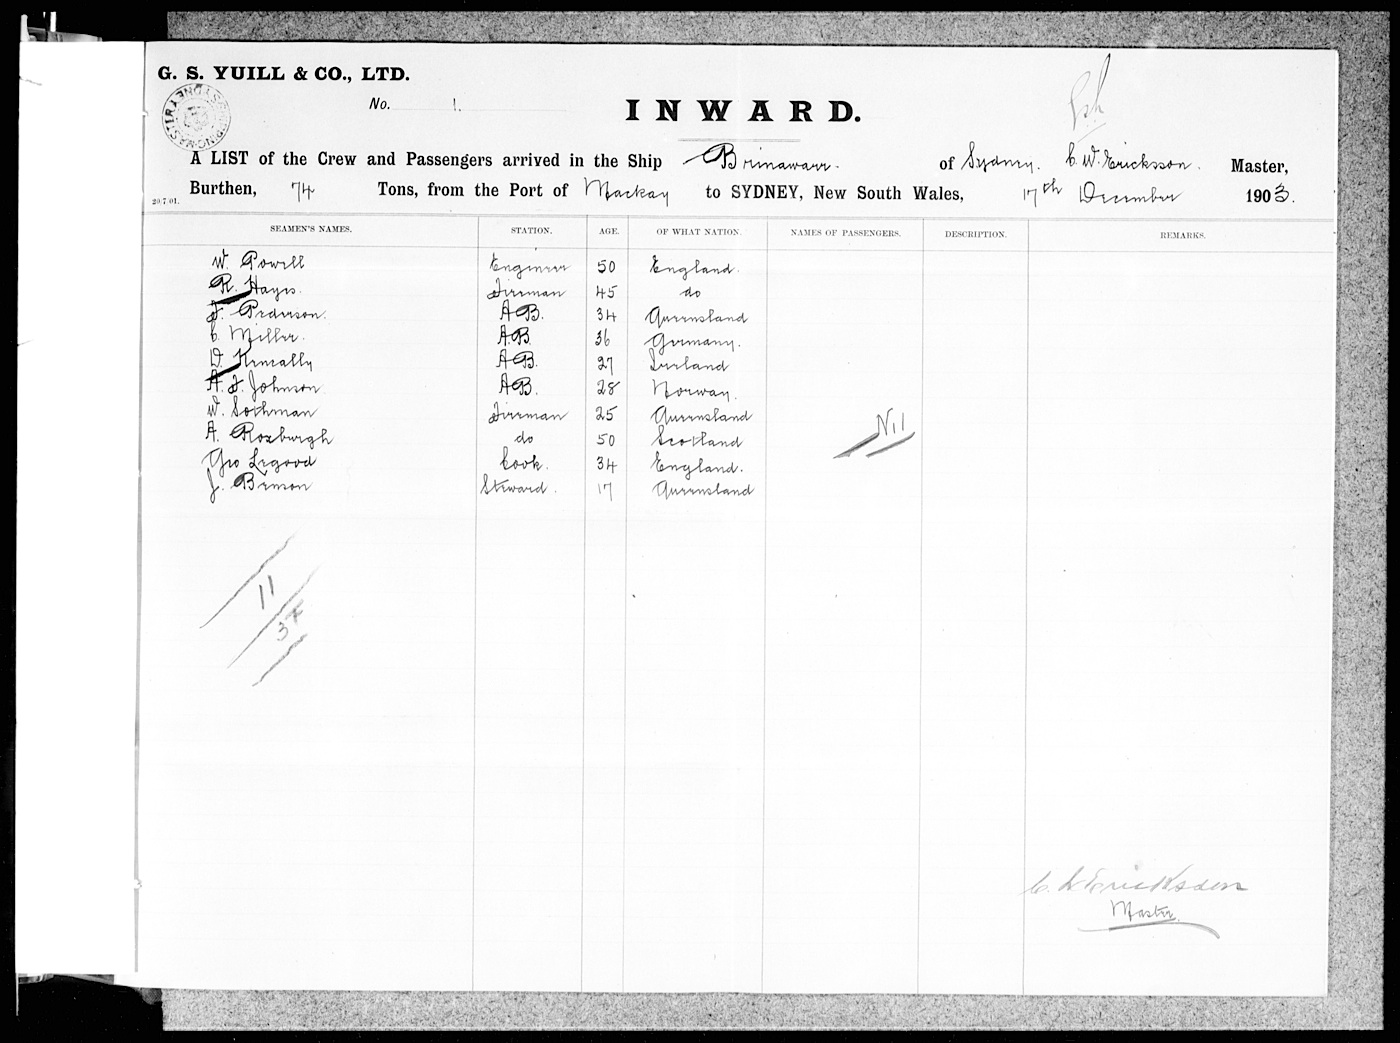 G. S. YUILL & CO., LTD.
No. 1.
INWARD.
A LIST of the Crew and Passengers arrived in the Ship Brinawarr. of Sydney. C. W. Ericksson. Master,
Burthen, 74 Tons, from the Port of Mackay to SYDNEY, New South Wales, 17th December 1903.
20.7.01.
SEAMEN'S NAMES. STATION. AGE. OF WHAT NATION. NAMES OF PASSENGERS. DESCRIPTION. REMARKS.
W. Powell Engineer 50 England.
R. Hayes. Fireman 45 do
F. Pederson. A.B. 34 Queensland
C. Miller. A.B. 36 Germany.
D. Keneally A.B. 27 Ireland
A. F. Johnson A.B. 28 Norway.
W. Sothman Fireman 25 Queensland
A. Roxburgh do 50 Scotland
Geo Legood Cook. 34 England.
J. Benson Steward. 17 Queensland
Nil
11
C. W Ericksson
Master.